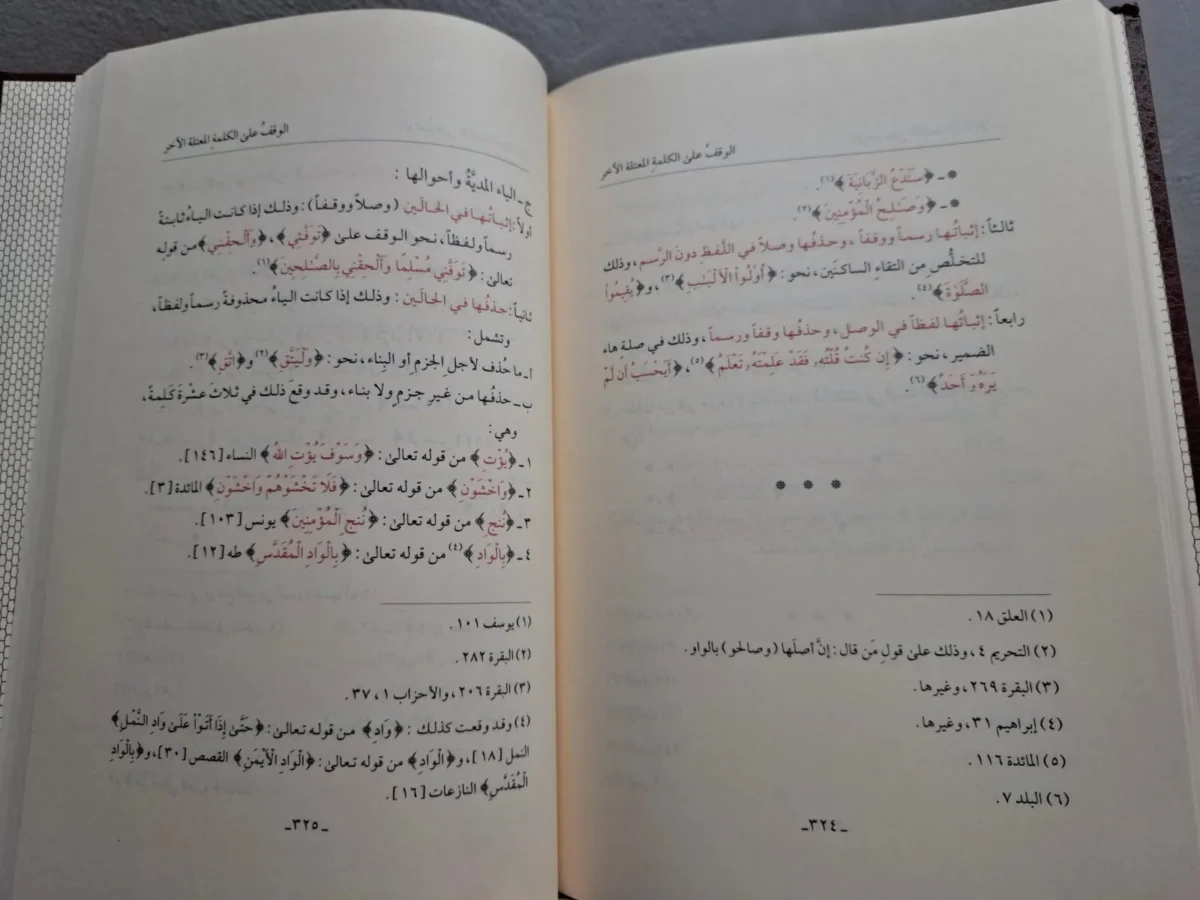 الوقفُ على الكلمةِ المعتلة الآخر
● ـ ﴿سَنَدْعُ الزَّبَانِيَةَ﴾(٦).
● ـ ﴿وَصَـٰلِحُ الْمُؤْمِنِينَ﴾(٢).
ثالثاً: إثباتُها رسماً ووقفاً، وحذفُها وصلاً في اللَّفظ دونَ الرَّسم، وذلك
للتخلُّصِ من التقاءِ الساكنَين، نحو: ﴿أُوْلُواْ الْأَلْبَـٰبِ﴾(٣)، و﴿يُقِيمُواْ
الصَّلَوٰةَ﴾(٤).
رابعاً: إثباتُها لفظاً في الوصل، وحذفُها وقفاً ورسماً، وذلك في صلةِ هاء
الضمير، نحو: ﴿إِن كُنتُ قُلْتُهُۥ فَقَدْ عَلِمْتَهُۥ تَعْلَمُ﴾(٥)، ﴿أَيَحْسَبُ أَن لَّمْ
يَرَهُۥٓ أَحَدٌ﴾(٦).
* * *
(١) العلق ١٨.
(٢) التحريم ٤، وذلك على قولِ مَن قال: إنَّ أصلَها (وصالحو) بالواو.
(٣) البقرة ٢٦٩، وغيرها.
(٤) إبراهيم ٣١، وغيرها.
(٥) المائدة ١١٦.
(٦) البلد ٧.
ـ٣٢٤ـ
الوقفُ على الكلمةِ المعتلة الآخر
ج ـ الياء المديَّةُ وأحوالها:
أولاً: إثباتُها في الحالَين (وصلاً ووقفاً): وذلك إذا كانت الياءُ ثابتةً
رسماً ولفظاً، نحو الوقف على ﴿تَوَفَّنِي﴾، ﴿وَأَلْحِقْنِي﴾ من قوله
تعالىٰ: ﴿تَوَفَّنِي مُسْلِمًا وَأَلْحِقْنِي بِالصَّـٰلِحِينَ﴾(١).
ثانياً: حذفُها في الحالَين: وذلك إذا كانت الياءُ محذوفةً رسماً ولفظاً،
وتشمل:
أ ـ ما حُذف لأجلِ الجزمِ أو البِناء، نحو: ﴿وَلْيَتَّقِ﴾(٢) و﴿اتَّقِ﴾(٣).
ب ـ حذفُها من غيرِ جزمٍ ولا بناء، وقد وقعَ ذلك في ثلاثَ عشْرةَ كَلِمةً،
وهي:
١ ـ ﴿يُؤْتِ﴾ من قوله تعالىٰ: ﴿وَسَوْفَ يُؤْتِ اللَّهُ﴾ النساء [١٤٦].
٢ ـ ﴿وَاخْشَوْنِ﴾ من قوله تعالىٰ: ﴿فَلَا تَخْشَوْهُمْ وَاخْشَوْنِ﴾ المائدة [٣].
٣ ـ ﴿نُنجِ﴾ من قوله تعالىٰ: ﴿نُنجِ الْمُؤْمِنِينَ﴾ يونس [١٠٣].
٤ ـ ﴿بِالْوَادِ﴾(٤) من قوله تعالىٰ: ﴿بِالْوَادِ الْمُقَدَّسِ﴾ طه [١٢].
(١) يوسف ١٠١.
(٢) البقرة ٢٨٢.
(٣) البقرة ٢٠٦، والأحزاب ١، ٣٧.
(٤) وقد وقعت كذلك: ﴿وَادِ﴾ من قوله تعالىٰ: ﴿حَتَّىٰٓ إِذَآ أَتَوْاْ عَلَىٰ وَادِ النَّمْلِ﴾
النمل [١٨]، و﴿الْوَادِ﴾ من قوله تعالىٰ: ﴿الْوَادِ الْأَيْمَنِ﴾ القصص [٣٠]، و﴿بِالْوَادِ
الْمُقَدَّسِ﴾ النازعات [١٦].
ـ٣٢٥ـ